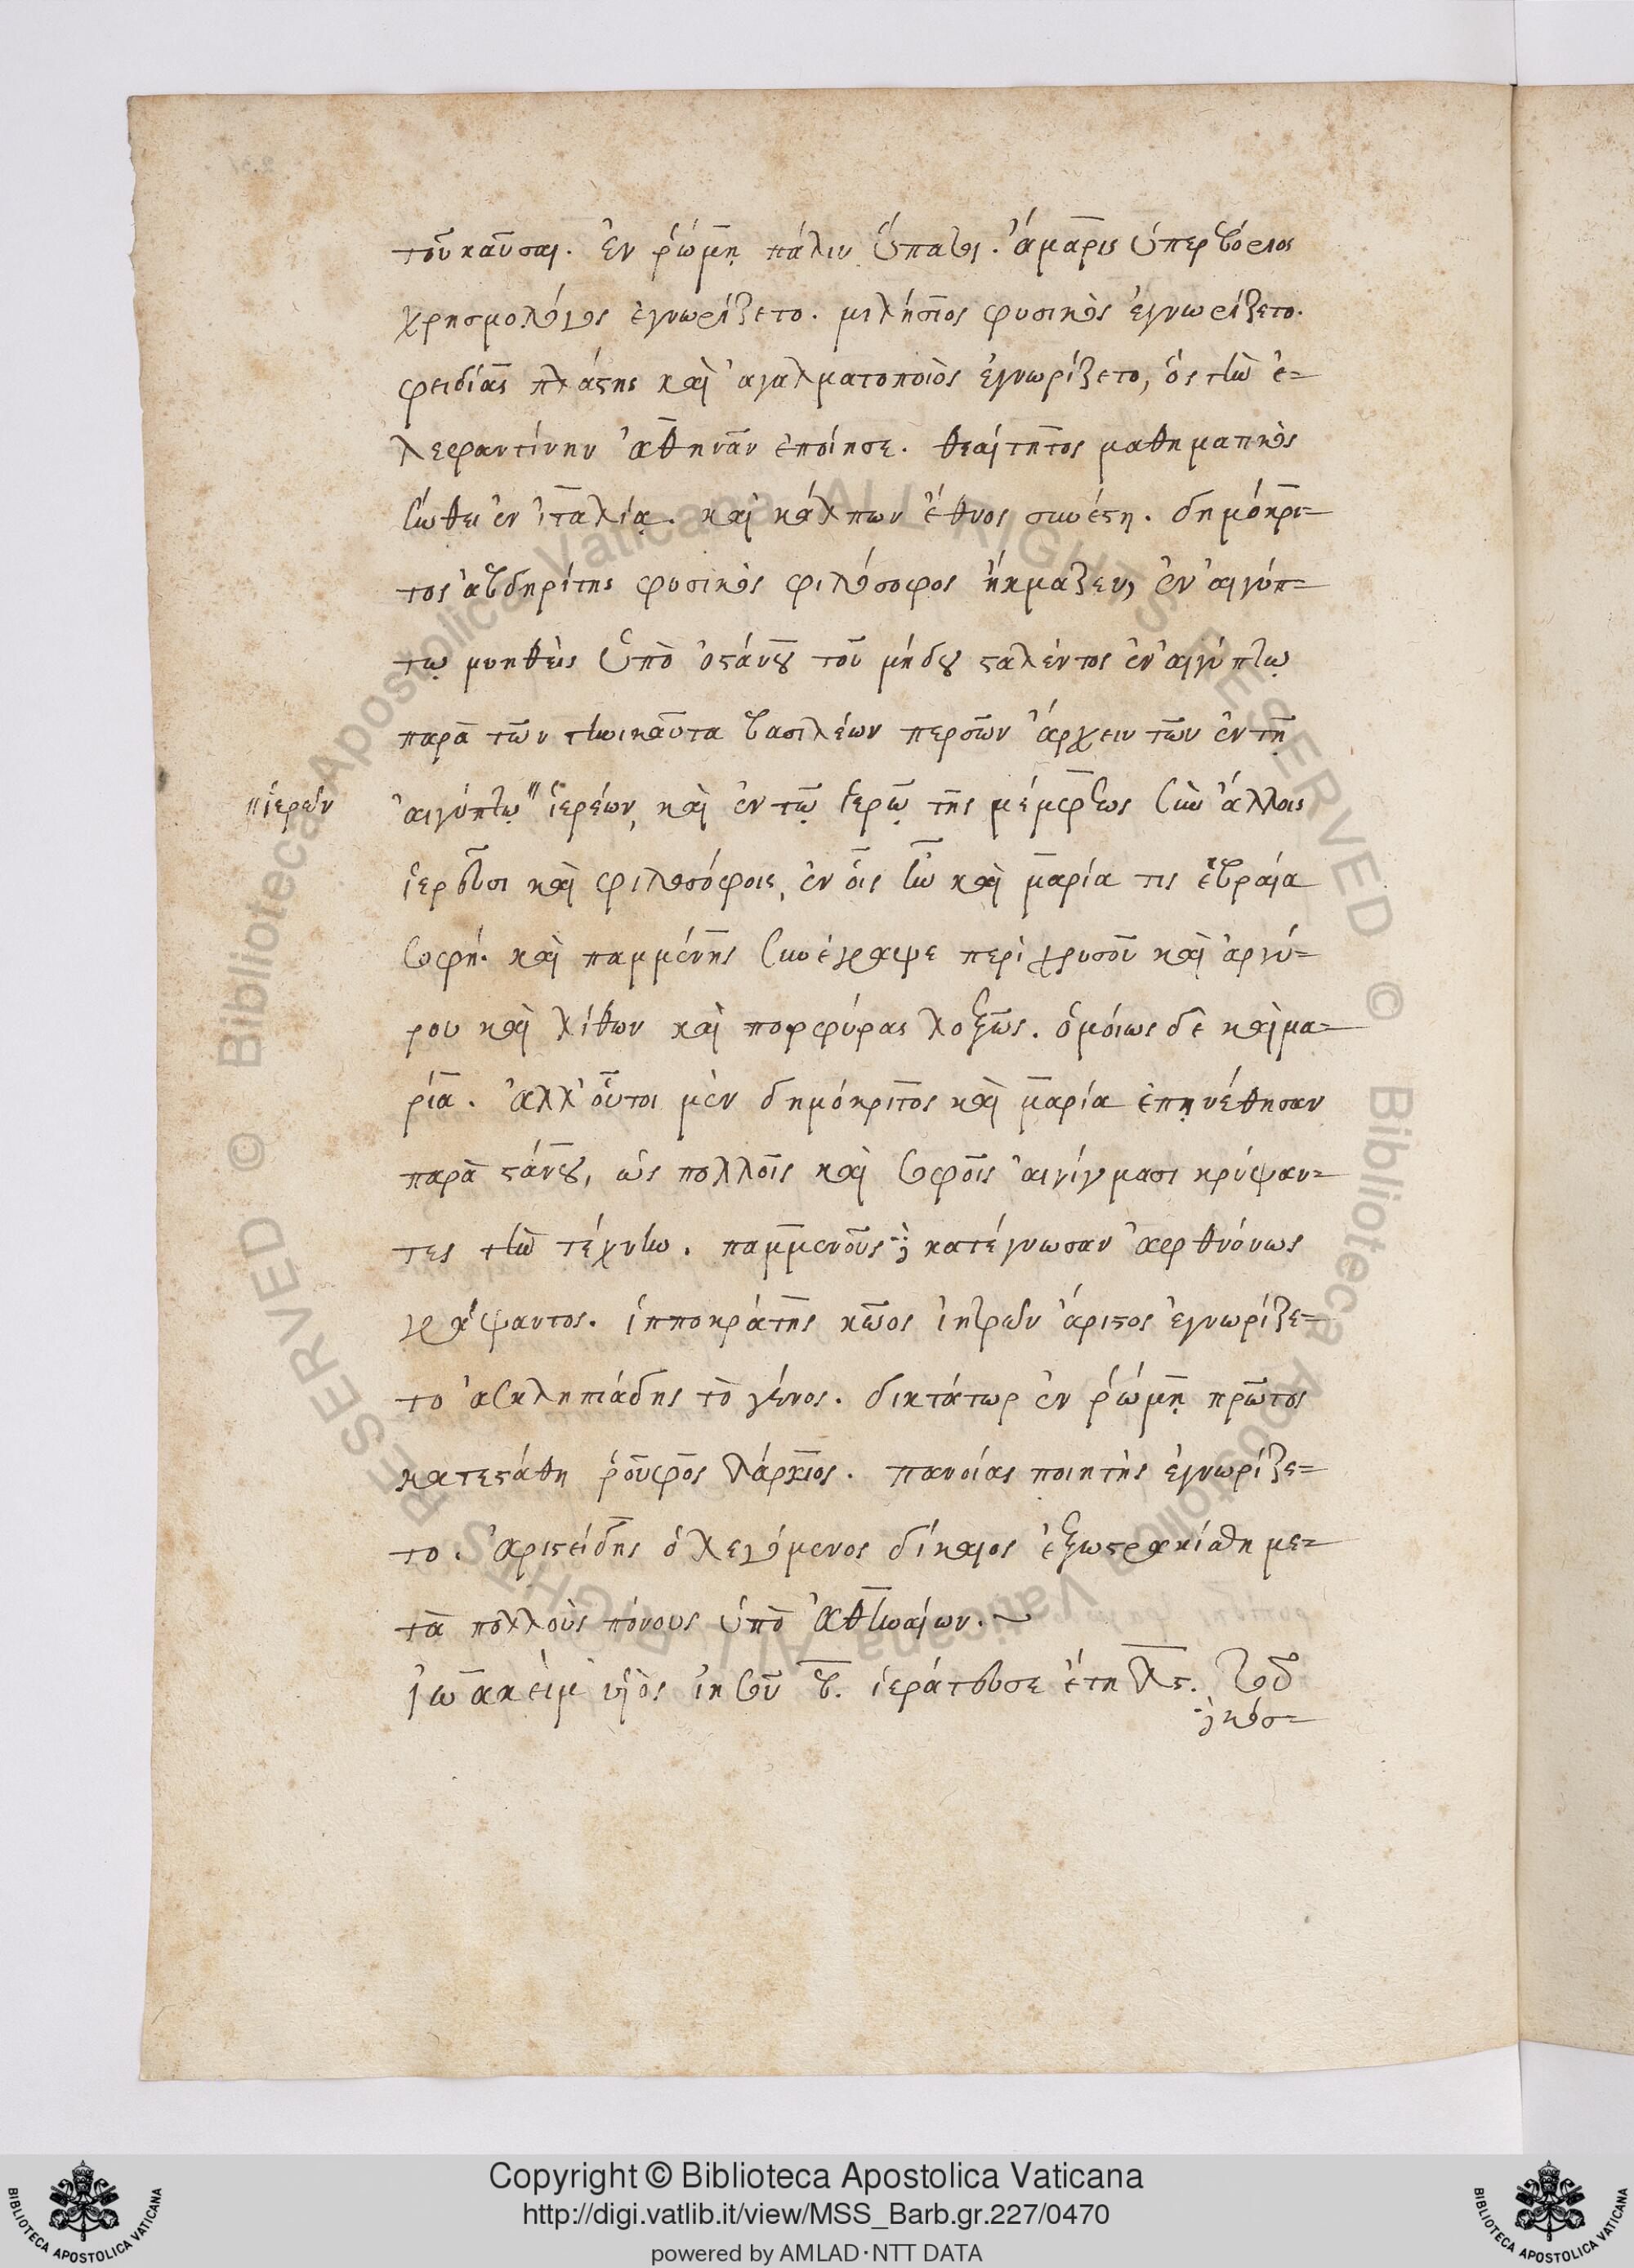 τοῦ καῦσαι. ἐν ῥώμῃ πάλιν ὕπατοι. ἄμαρις ὑπερβόρειος
χρησμολόγος ἐγνωρίζετο. μιλήσιος φυσικὸς ἐγνωρίζετο.
φειδίας πλάστης καὶ ἀγαλματοποιὸς ἐγνωρίζετο, ὃς τὴν ἐ-
λεφαντίνην ἀθηνᾶν ἐποίησε. θεαίτητος μαθηματικὸς
ἤνθει ἐν ἰταλίᾳ. καὶ κάλπων ἔθνος συνέστη. δημόκρι-
τος ἀβδηρίτης φυσικὸς φιλόσοφος ἤκμαζεν, ἐν αἰγύπ-
τῳ μυηθεὶς ὑπὸ ὀστάνου τοῦ μήδου σταλέντος ἐν αἰγύπτῳ
παρὰ τῶν τηνικαῦτα βασιλέων περσῶν ἄρχειν τῶν ἐν τῇ
αἰγύπτῳ " ἱερέων, καὶ ἐν τῷ ἱερῷ τῆς μέμφεως σὺν ἄλλοις
" ἱερῶν
ἱερεῦσι καὶ φιλοσόφοις, ἐν οἷς ἦν καὶ μαρία τις ἑβραία
σοφή. καὶ παμμένης συνέγραψε περὶ χρυσοῦ καὶ ἀργύ-
ρου καὶ λίθων καὶ πορφύρας λοξῶς. ὁμοίως δὲ καὶ μα-
ρία. ἀλλ' οὗτοι μὲν δημόκριτος καὶ μαρία ἐπῃνέθησαν
παρὰ στάνου, ὡς πολλοῖς καὶ σοφοῖς αἰνίγμασι κρύψαν-
τες τὴν τέχνην. παμμενοῦς δὲ κατέγνωσαν ἀφθνόνως
γράψαντος. ἱπποκράτης κῶος ἰητρῶν ἄριστος ἐγνωρίζε-
το ἀσκληπιάδης τὸ γένος. δικτάτωρ ἐν ῥώμῃ πρῶτος
κατεστάθη ῥοῦφος λάρκιος. πανοίας ποιητὴς ἐγνωρίζε-
το. ἀριστείδης ὁ λεγόμενος δίκαιος ἐξωστρακίσθη με-
τὰ πολλοὺς πόνους ὑπὸ ἀθηναίων.~
ἰωακεὶμ υἱὸς ἰησοῦ β. ἱεράτευσε ἔτη λς. τοῦ
δὲ κόσ-
Copyright © Biblioteca Apostolica Vaticana
http://digi.vatlib.it/view/MSS_Barb.gr.227/0470
powered by AMLAD·NTT DATA
BIBLIOTECA APOSTOLICA VATICANA
BIBLIOTECA APOSTOLICA VATICANA
© Biblioteca Apostolica Vaticana ALL RIGHTS RESERVED © Biblioteca Apostolica Vaticana ALL RIGHTS RESERVED